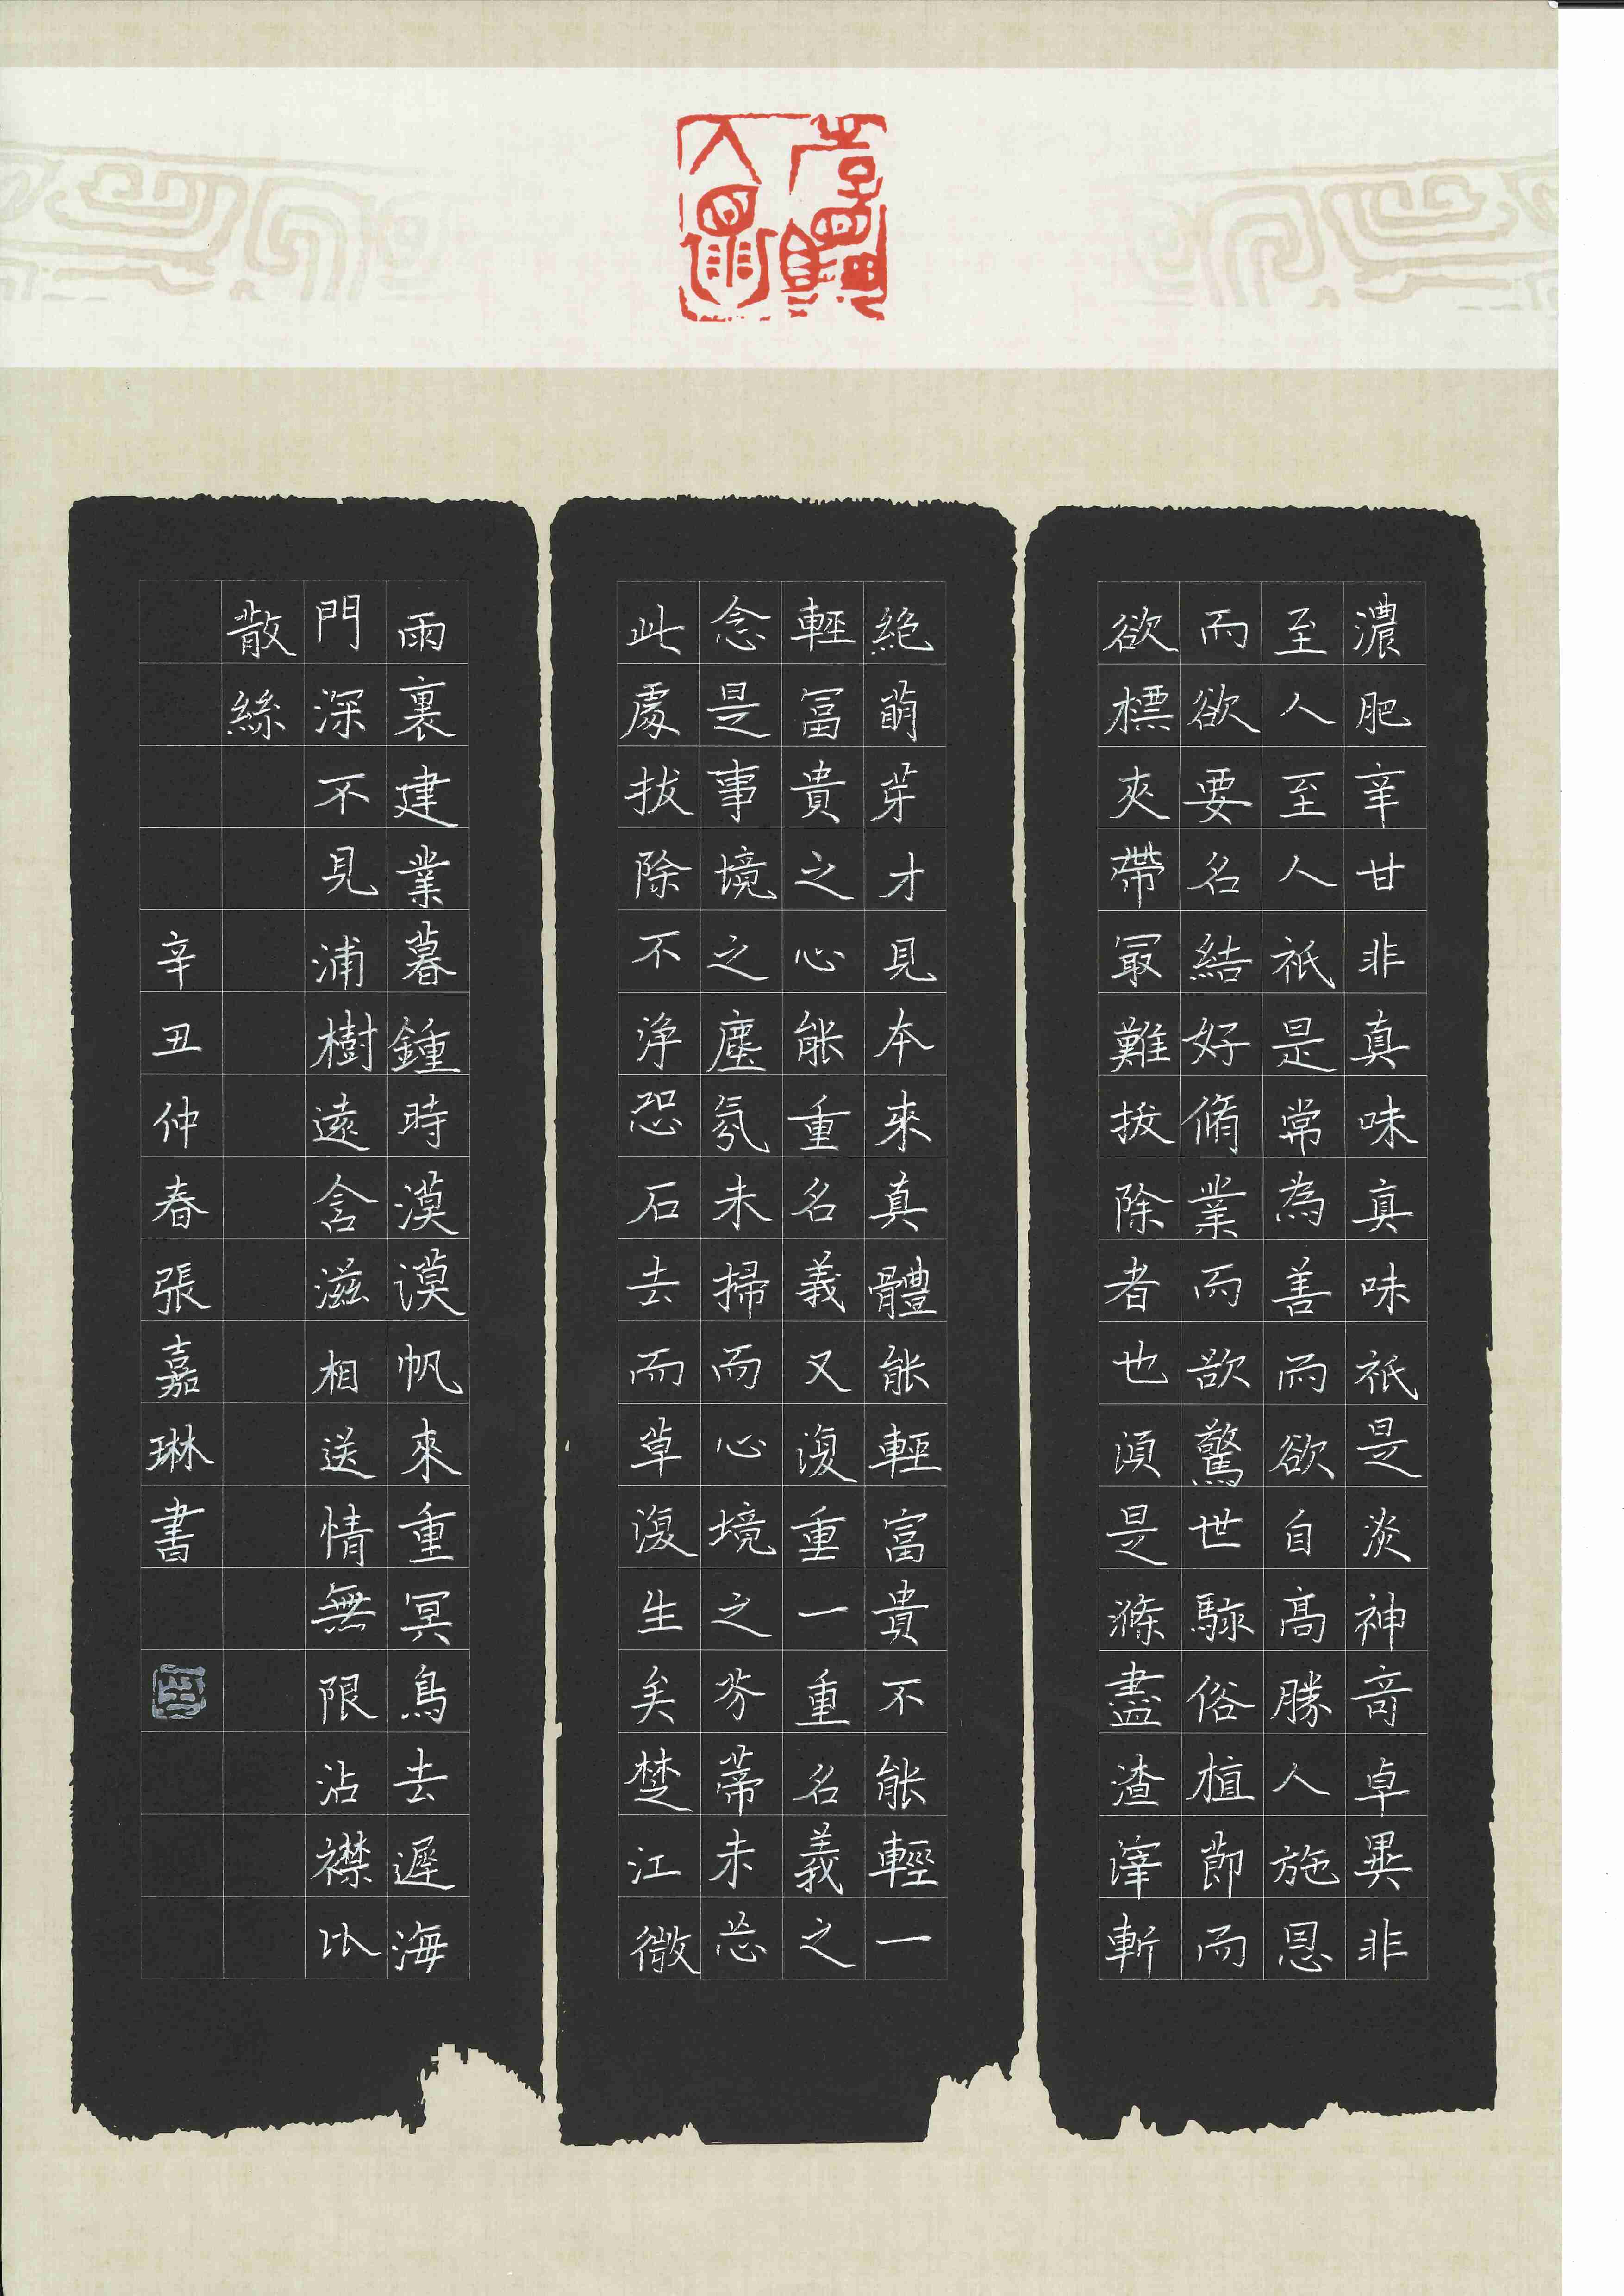 濃肥辛甘非真味真味衹是淡神竒卓異非
至人至人衹是常為善而欲自高勝人施恩
而欲要名結好脩業而欲驚世駭俗植節而
欲標夾帶冣難拔除者也須是滌盡渣滓斬
絶萌芽才見本來真體能輕富貴不能輕一
輕冨貴之心能重名義又復重一重名義之
念是事境之塵氛未掃而心境之芥蒂未忘
此處拔除不淨恐石去而草復生矣楚江微
雨裏建業暮鍾時漠漠帆來重冥鳥去遲海
門深不見浦樹遠含滋相送情無限沾襟比
散絲
辛丑仲春張嘉琳書